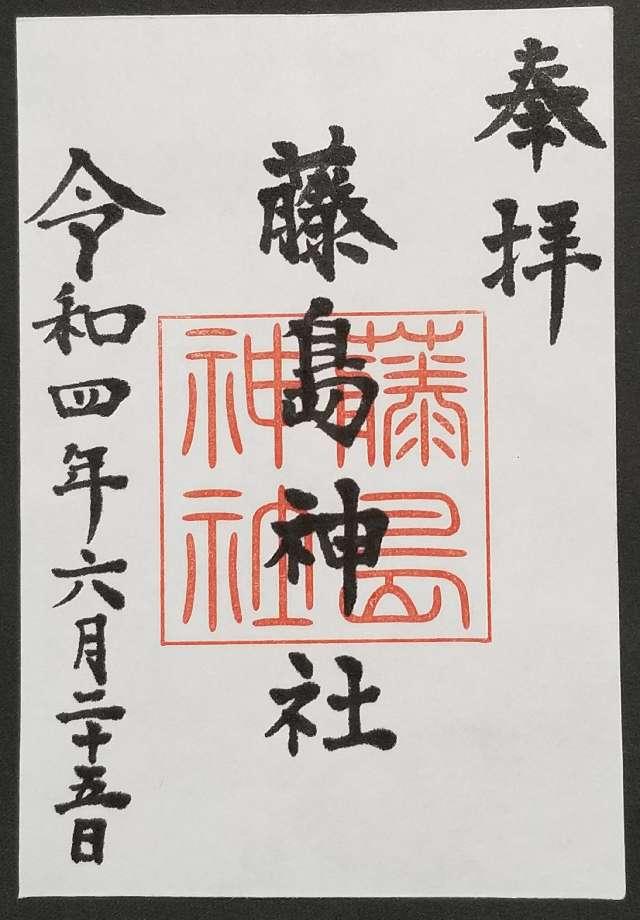 奉拝
藤島神社
藤島神社
令和四年六月二十五日